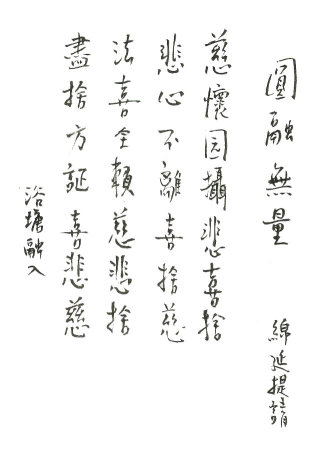 圓融無量
綿延提請
慈懷因攝悲喜捨
悲心不離喜捨慈
法喜全賴慈悲捨
盡捨方証喜悲慈
浴塘融入